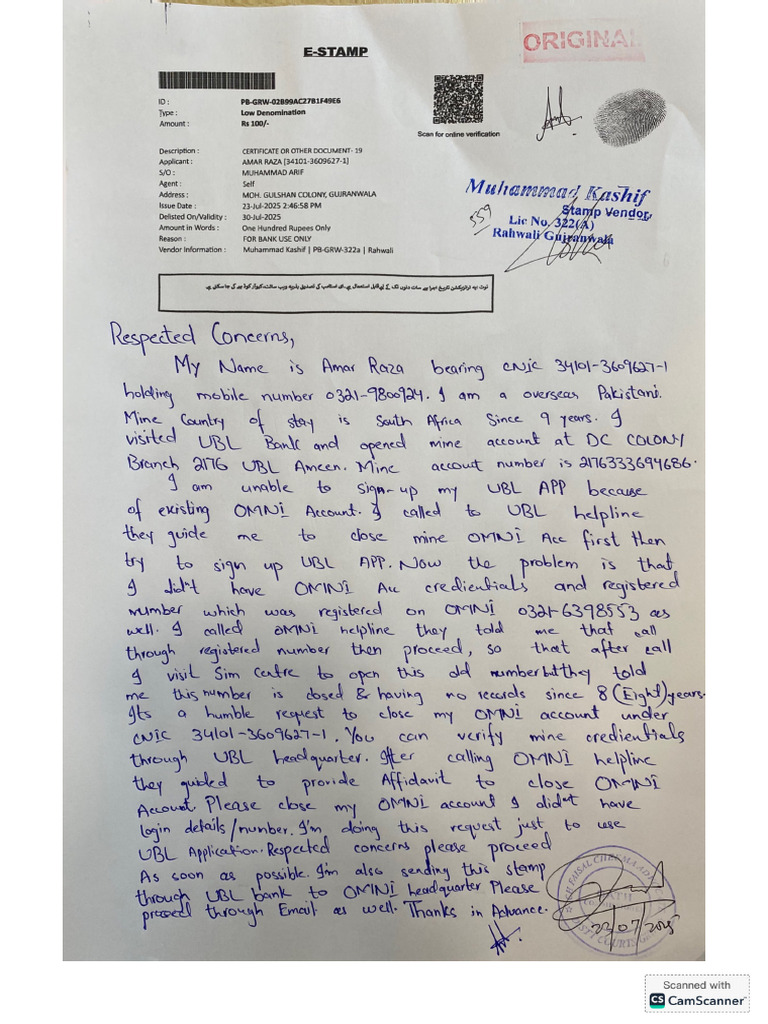 E-STAMP
ORIGINAL
ID : PB-GRW-02B99AC27B1F49E6
Type : Low Denomination
Amount : Rs 100/-
Scan for online verification
Description : CERTIFICATE OR OTHER DOCUMENT- 19
Applicant : AMAR RAZA [34101-3609627-1]
S/O : MUHAMMAD ARIF
Agent : Self
Address : MOH. GULSHAN COLONY, GUJRANWALA
Issue Date : 23-Jul-2025 2:46:58 PM
Delisted On/Validity : 30-Jul-2025
Amount in Words : One Hundred Rupees Only
Reason : FOR BANK USE ONLY
Vendor Information : Muhammad Kashif | PB-GRW-322a | Rahwali
Muhammad Kashif
Stamp Vendor,
559
Lic No. 322(A)
Rahwali Gujranwala
نوٹ :یہ ٹرانزیکشن تاریخ اجرا سے سات دنوں تک کے لیے قابل استعمال ہے۔ای اسٹامپ کی تصدیق بذریعہ ویب سائٹ،کیو آر کوڈ سے کی جا سکتی ہے۔
Respected Concerns,
My Name is Amar Raza bearing CNIC 34101-3609627-1
holding mobile number 0321-9800924. I am a overseas Pakistani.
Mine Country of stay is South Africa Since 9 years. I
visited UBL Bank and opened mine account at DC COLONY
Branch 2176 UBL Ameen. Mine account number is 2176333694686.
I am unable to sign-up my UBL APP because
of existing OMNI Account. I called to UBL helpline
they guide me to close mine OMNI Acc first then
try to sign up UBL APP. Now the problem is that
I didn't have OMINI Acc credientials and registered
number which was registered on OMNI 0321-6398553 as
well. I called OMNI helpline they told me that call
through registered number then proceed, so that after call
I visit Sim Centre to open this old number but they told
me this number is closed & having no records since 8 (Eight) years.
Its a humble request to close my OMNI account under
CNIC 34101-3609627-1. You can verify mine credientials
through UBL headquarter. After calling OMNI helpline
they guided to provide Affidavit to close OMNI
Account. Please close my OMNI account I didn't have
login details/number. I'm doing this request just to use
UBL Application. Respected concerns please proceed
As soon as possible. I'm also sending this stamp
through UBL bank to OMNI headquarter Please
proceed through Email as well. Thanks in Advance.
23/07/2025
Scanned with
CS CamScanner